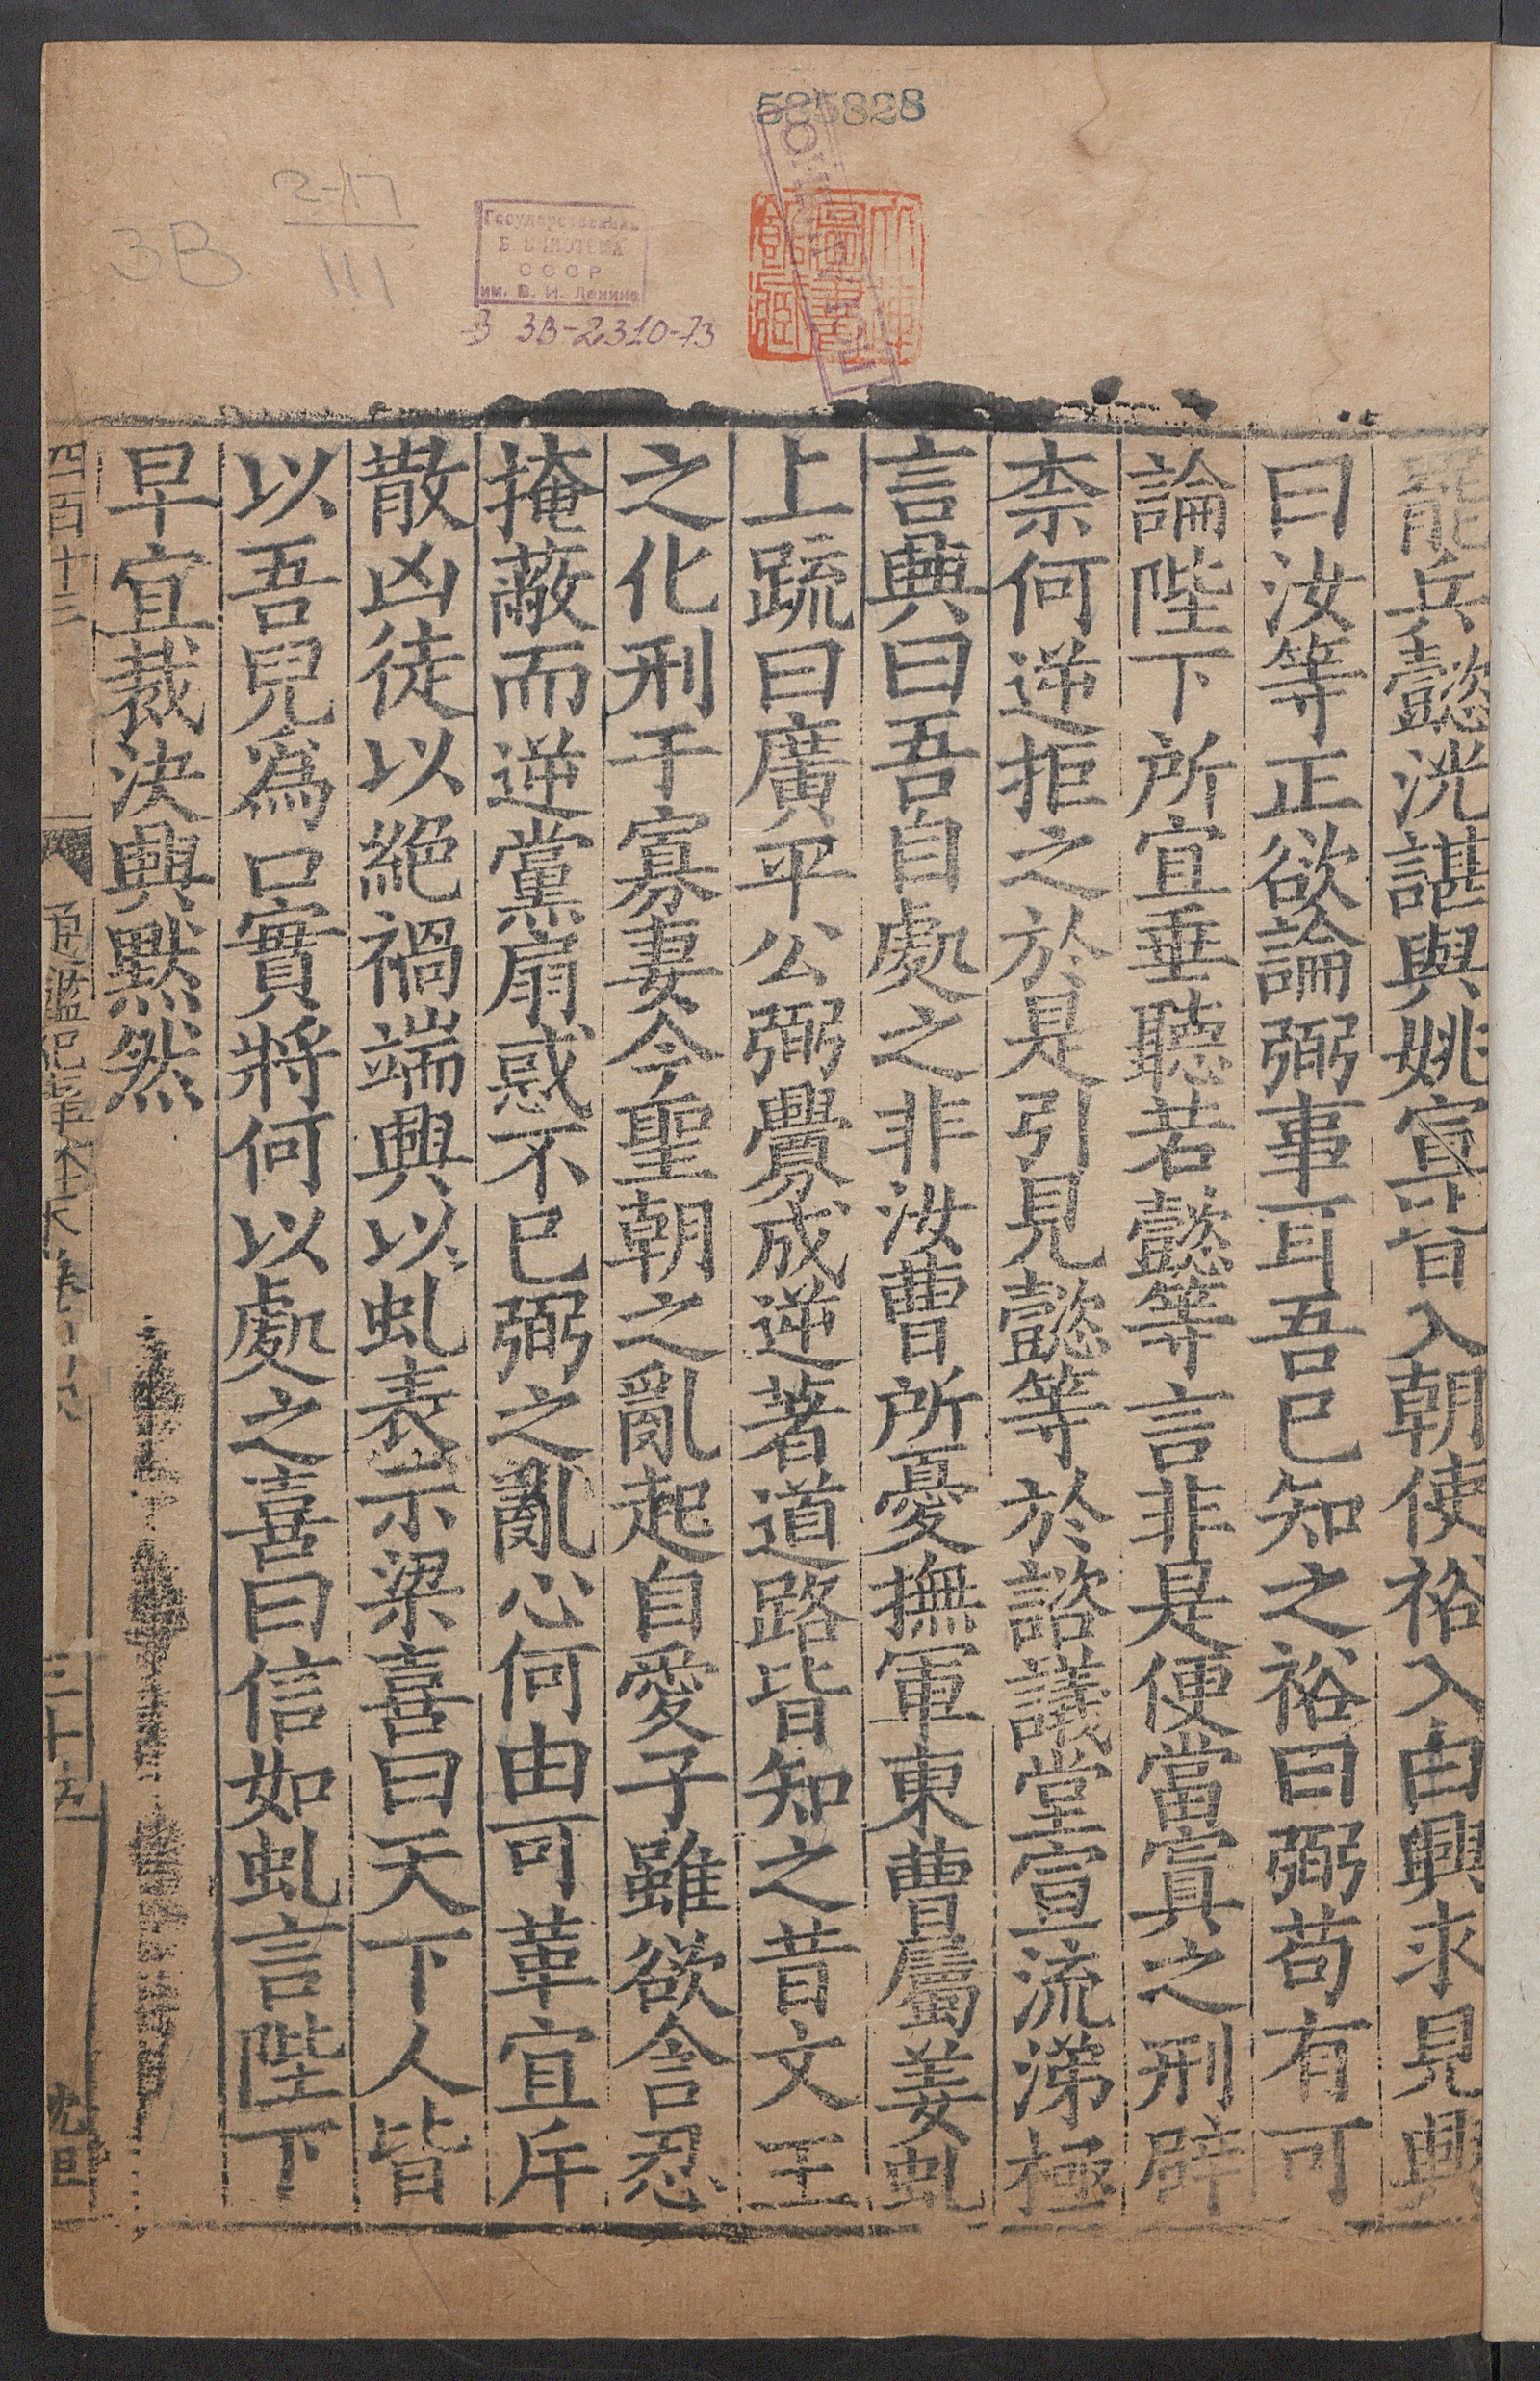 585828
2-17
111
3B
Государственная
БИБЛИОТЕКА
СССР
им. В. И. Ленина
З 3В-2310-73
罷兵懿洸諶與姚宣皆入朝使裕入白興求見興
曰汝等正欲論弼事耳吾已知之裕曰弼苟有可
論陛下所宜垂聽若懿等言非是便當寘之刑辟
柰何逆拒之於是引見懿等於諮議堂宣流涕極
言興曰吾自處之非汝曹所憂撫軍東曹屬姜虬
上疏曰廣平公弼釁成逆著道路皆知之昔文王
之化刑于寡妻今聖朝之亂起自愛子雖欲含忍
掩蔽而逆黨扇惑不已弼之亂心何由可革宜斥
散凶徒以絕禍端興以虬表示梁喜曰天下人皆
以吾兒爲口實將何以處之喜曰信如虬言陛下
早宜裁決興默然
四百十三
通鑑紀事本末卷十六
三十五